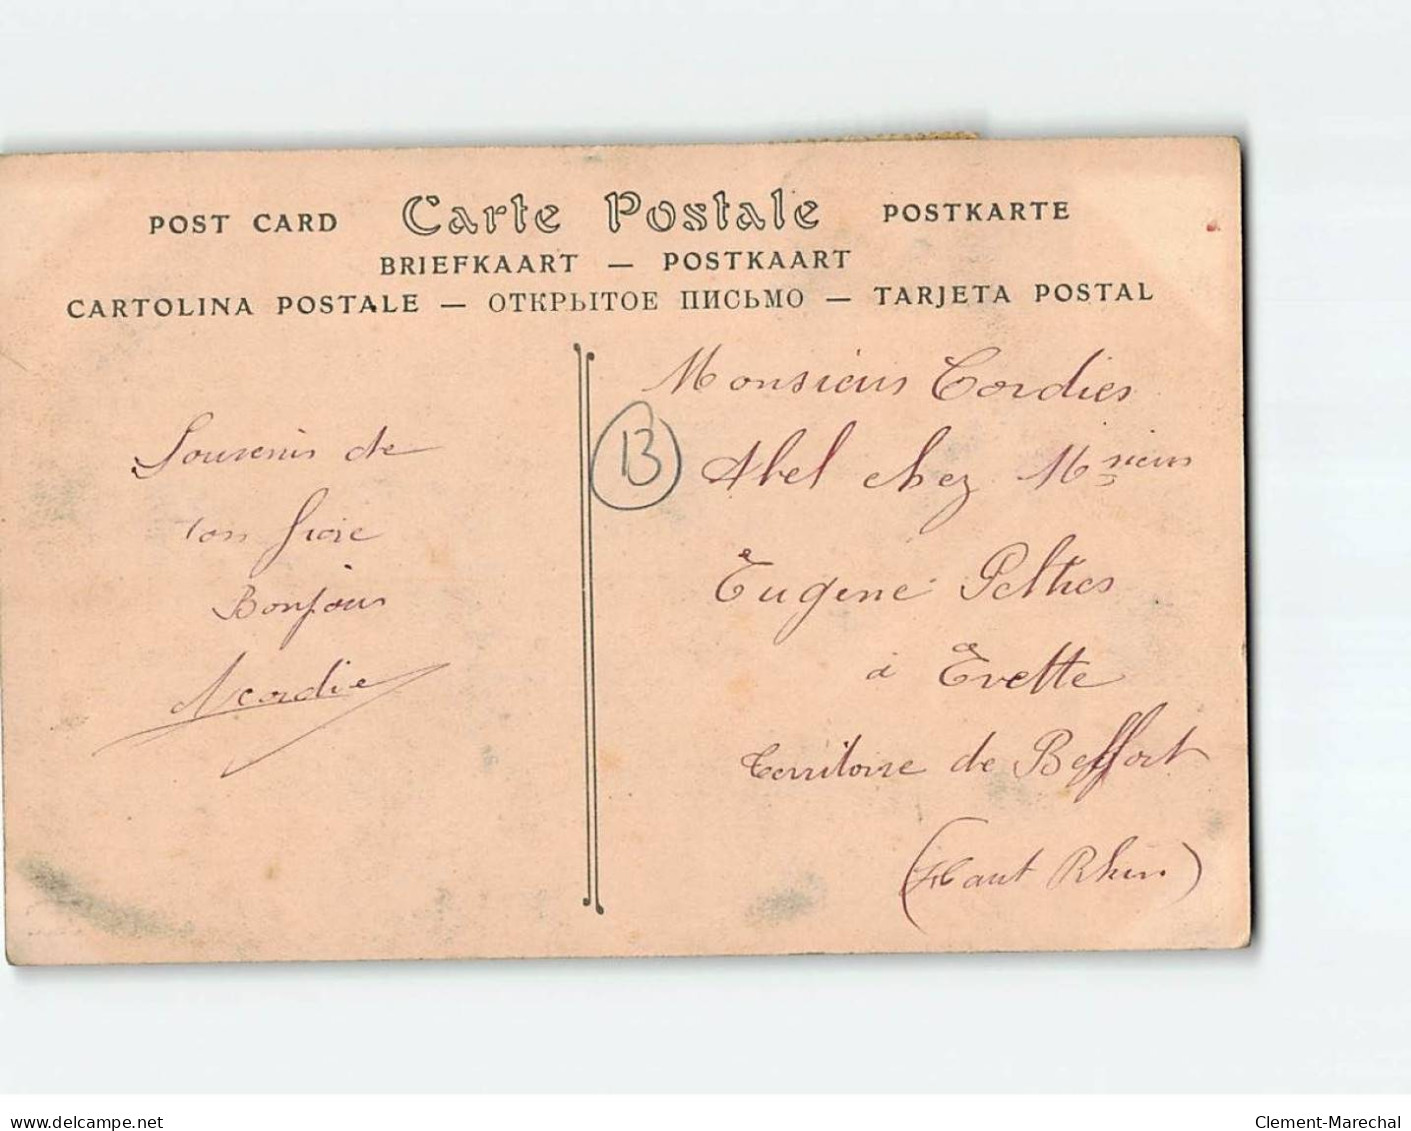 POST CARD Carte Postale POSTKARTE
BRIEFKAART — POSTKAART
CARTOLINA POSTALE — ОТКРЫТОЕ ПИСЬМО — TARJETA POSTAL
Souvenir de
ton frère
Bonjour
Monsieur Cordier
Abel chez Msieur
Eugène
à Evette
territoire de Belffort
(Haut Rhin)
13
www.delcampe.net
Clement-Marechal